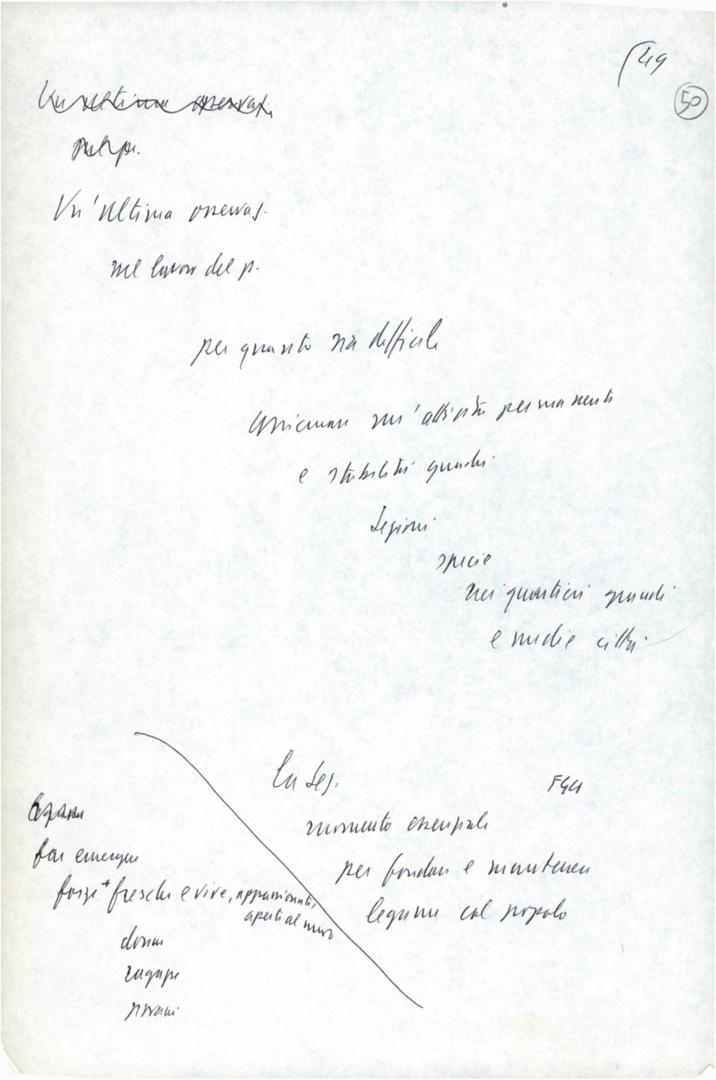 49
50
Un'ultima osservaz.
sul p.
Un'ultima osservaz.
nel lavoro del p.
per quanto sia difficile
assicurare un'attività permanente
e stabilità quadri
Sezioni
specie
nei quartieri grandi
e medie città
La Sez.
FGCI
momento essenziale
per fondare e mantenere
legame col popolo
far emergere
forze + fresche e vive, appassionate,
aperte al nuovo
donne
ragazze
giovani